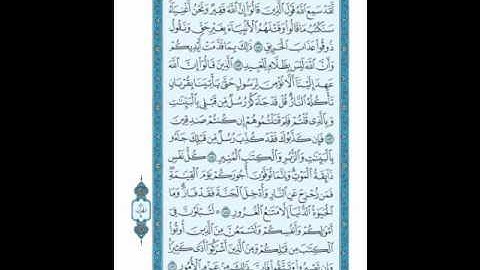 لَّقَدْ سَمِعَ ٱللَّهُ قَوْلَ ٱلَّذِينَ قَالُوٓا۟ إِنَّ ٱللَّهَ فَقِيرٌ وَنَحْنُ أَغْنِيَآءُ
سَنَكْتُبُ مَا قَالُوا۟ وَقَتْلَهُمُ ٱلْأَنۢبِيَآءَ بِغَيْرِ حَقٍّ وَنَقُولُ
ذُوقُوا۟ عَذَابَ ٱلْحَرِيقِ ذَٰلِكَ بِمَا قَدَّمَتْ أَيْدِيكُمْ
وَأَنَّ ٱللَّهَ لَيْسَ بِظَلَّامٍ لِّلْعَبِيدِ ٱلَّذِينَ قَالُوٓا۟ إِنَّ ٱللَّهَ
عَهِدَ إِلَيْنَآ أَلَّا نُؤْمِنَ لِرَسُولٍ حَتَّىٰ يَأْتِيَنَا بِقُرْبَانٍ
تَأْكُلُهُ ٱلنَّارُ قُلْ قَدْ جَآءَكُمْ رُسُلٌ مِّن قَبْلِى بِٱلْبَيِّنَٰتِ
وَبِٱلَّذِى قُلْتُمْ فَلِمَ قَتَلْتُمُوهُمْ إِن كُنتُمْ صَٰدِقِينَ
فَإِن كَذَّبُوكَ فَقَدْ كُذِّبَ رُسُلٌ مِّن قَبْلِكَ جَآءُو
بِٱلْبَيِّنَٰتِ وَٱلزُّبُرِ وَٱلْكِتَٰبِ ٱلْمُنِيرِ كُلُّ نَفْسٍ
ذَآئِقَةُ ٱلْمَوْتِ وَإِنَّمَا تُوَفَّوْنَ أُجُورَكُمْ يَوْمَ ٱلْقِيَٰمَةِ
فَمَن زُحْزِحَ عَنِ ٱلنَّارِ وَأُدْخِلَ ٱلْجَنَّةَ فَقَدْ فَازَ وَمَا
ٱلْحَيَوٰةُ ٱلدُّنْيَآ إِلَّا مَتَٰعُ ٱلْغُرُورِ لَتُبْلَوُنَّ فِىٓ
أَمْوَٰلِكُمْ وَأَنفُسِكُمْ وَلَتَسْمَعُنَّ مِنَ ٱلَّذِينَ أُوتُوا۟
ٱلْكِتَٰبَ مِن قَبْلِكُمْ وَمِنَ ٱلَّذِينَ أَشْرَكُوٓا۟ أَذًى كَثِيرًا
وَإِن تَصْبِرُوا۟ وَتَتَّقُوا۟ فَإِنَّ ذَٰلِكَ مِنْ عَزْمِ ٱلْأُمُورِ